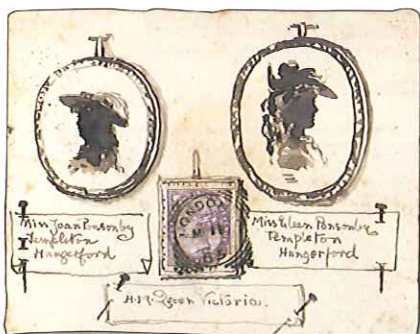 LONDON
65
Miss Joan Ponsonby
Templeton
Hungerford
Miss Eileen Ponsonby
Templeton
Hungerford
H.M. Queen Victoria.